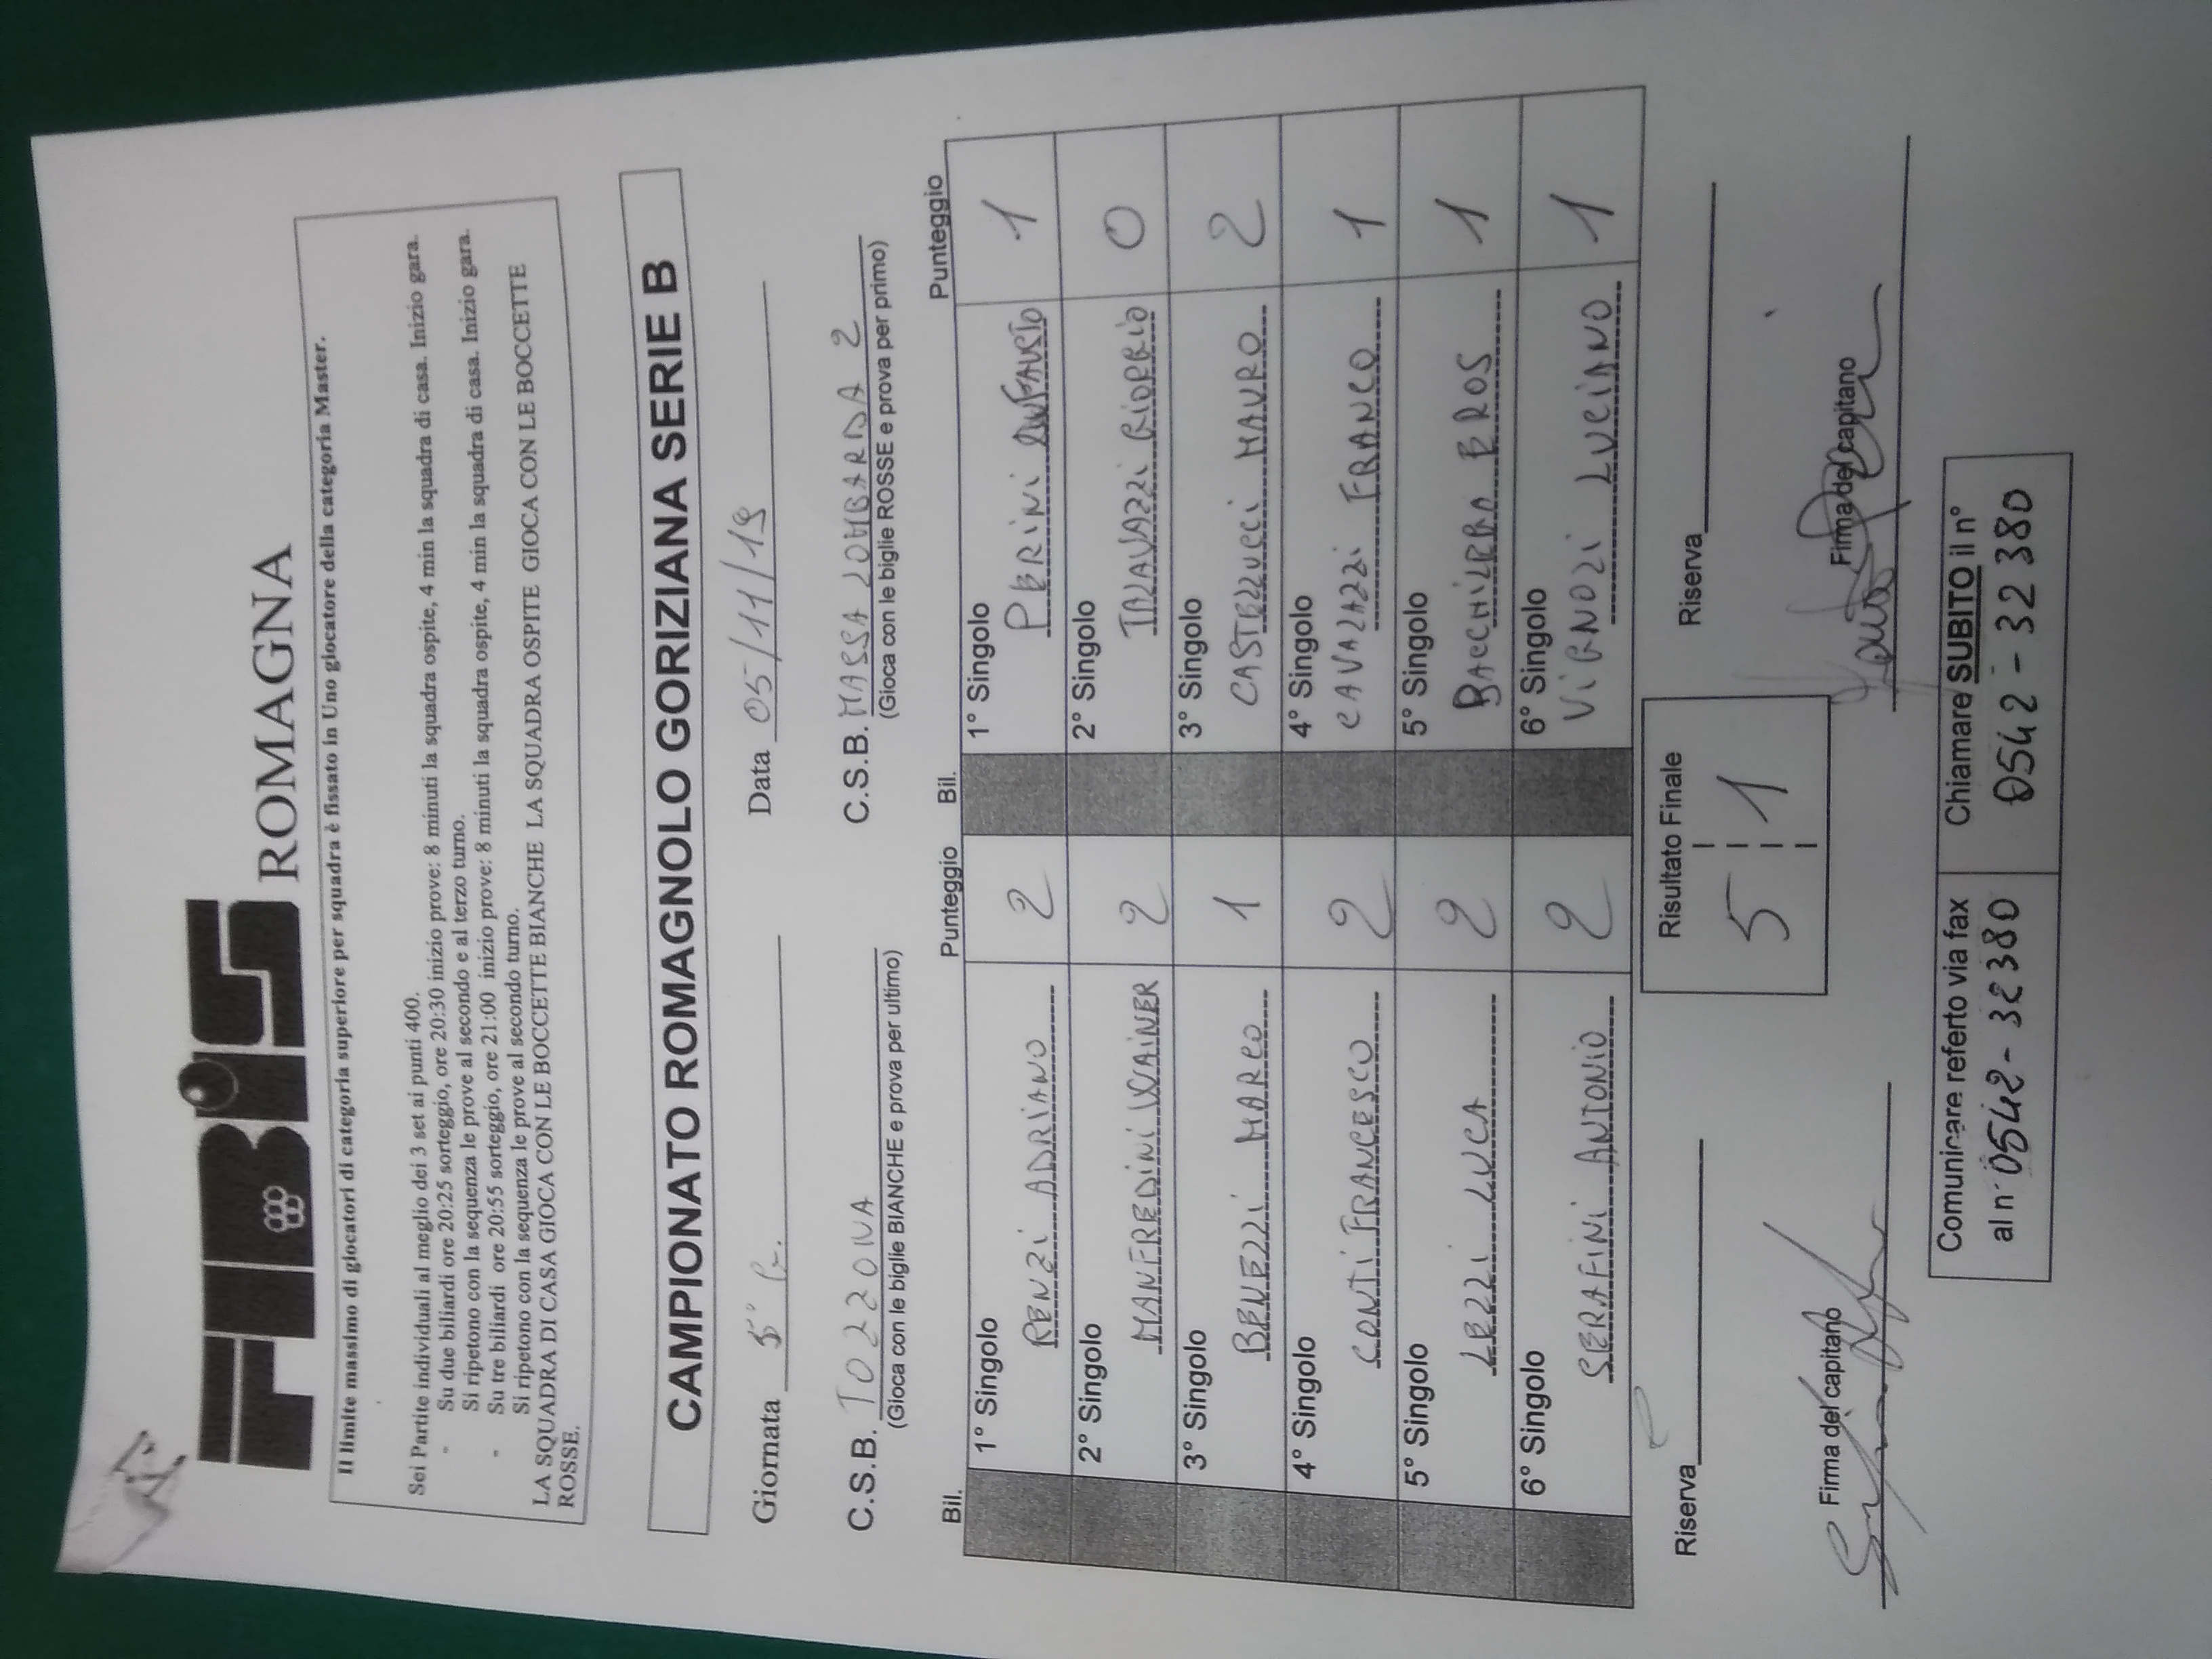 FIBiS
ROMAGNA
Il limite massimo di giocatori di categoria superiore per squadra è fissato in Uno giocatore della categoria Master.
Sei Partite individuali al meglio dei 3 set ai punti 400.
- Su due biliardi ore 20:25 sorteggio, ore 20:30 inizio prove: 8 minuti la squadra ospite, 4 min la squadra di casa. Inizio gara.
Si ripetono con la sequenza le prove al secondo e al terzo turno.
- Su tre biliardi ore 20:55 sorteggio, ore 21:00 inizio prove: 8 minuti la squadra ospite, 4 min la squadra di casa. Inizio gara.
Si ripetono con la sequenza le prove al secondo turno.
LA SQUADRA DI CASA GIOCA CON LE BOCCETTE BIANCHE LA SQUADRA OSPITE GIOCA CON LE BOCCETTE
ROSSE.
CAMPIONATO ROMAGNOLO GORIZIANA SERIE B
Giornata 5° G. Data 05/11/19
C.S.B. TOZZONA C.S.B. MASSA LOMBARDA 2
(Gioca con le biglie BIANCHE e prova per ultimo) (Gioca con le biglie ROSSE e prova per primo)
Bil. Punteggio Bil. Punteggio
1° Singolo 1° Singolo
RENZI ADRIANO 2 PERINI FAUSTO 1
2° Singolo 2° Singolo
MANFREDINI WAINER 2 GIORGIO 0
3° Singolo 3° Singolo
BENEZZI MARCO 1 CASTELLUCCI MAURO 2
4° Singolo 4° Singolo
CONTI FRANCESCO 2 CAVAZZI FRANCO 1
5° Singolo 5° Singolo
LEZZI LUCA 2 BACCHILEGA EROS 1
6° Singolo 6° Singolo
SERAFINI ANTONIO 2 VIGNOLI LUCIANO 1
Riserva Risultato Finale Riserva
5 1
Firma del capitano Firma del capitano
Comunicare referto via fax Chiamare SUBITO il n°
al n° 0542-32380 0542-32380